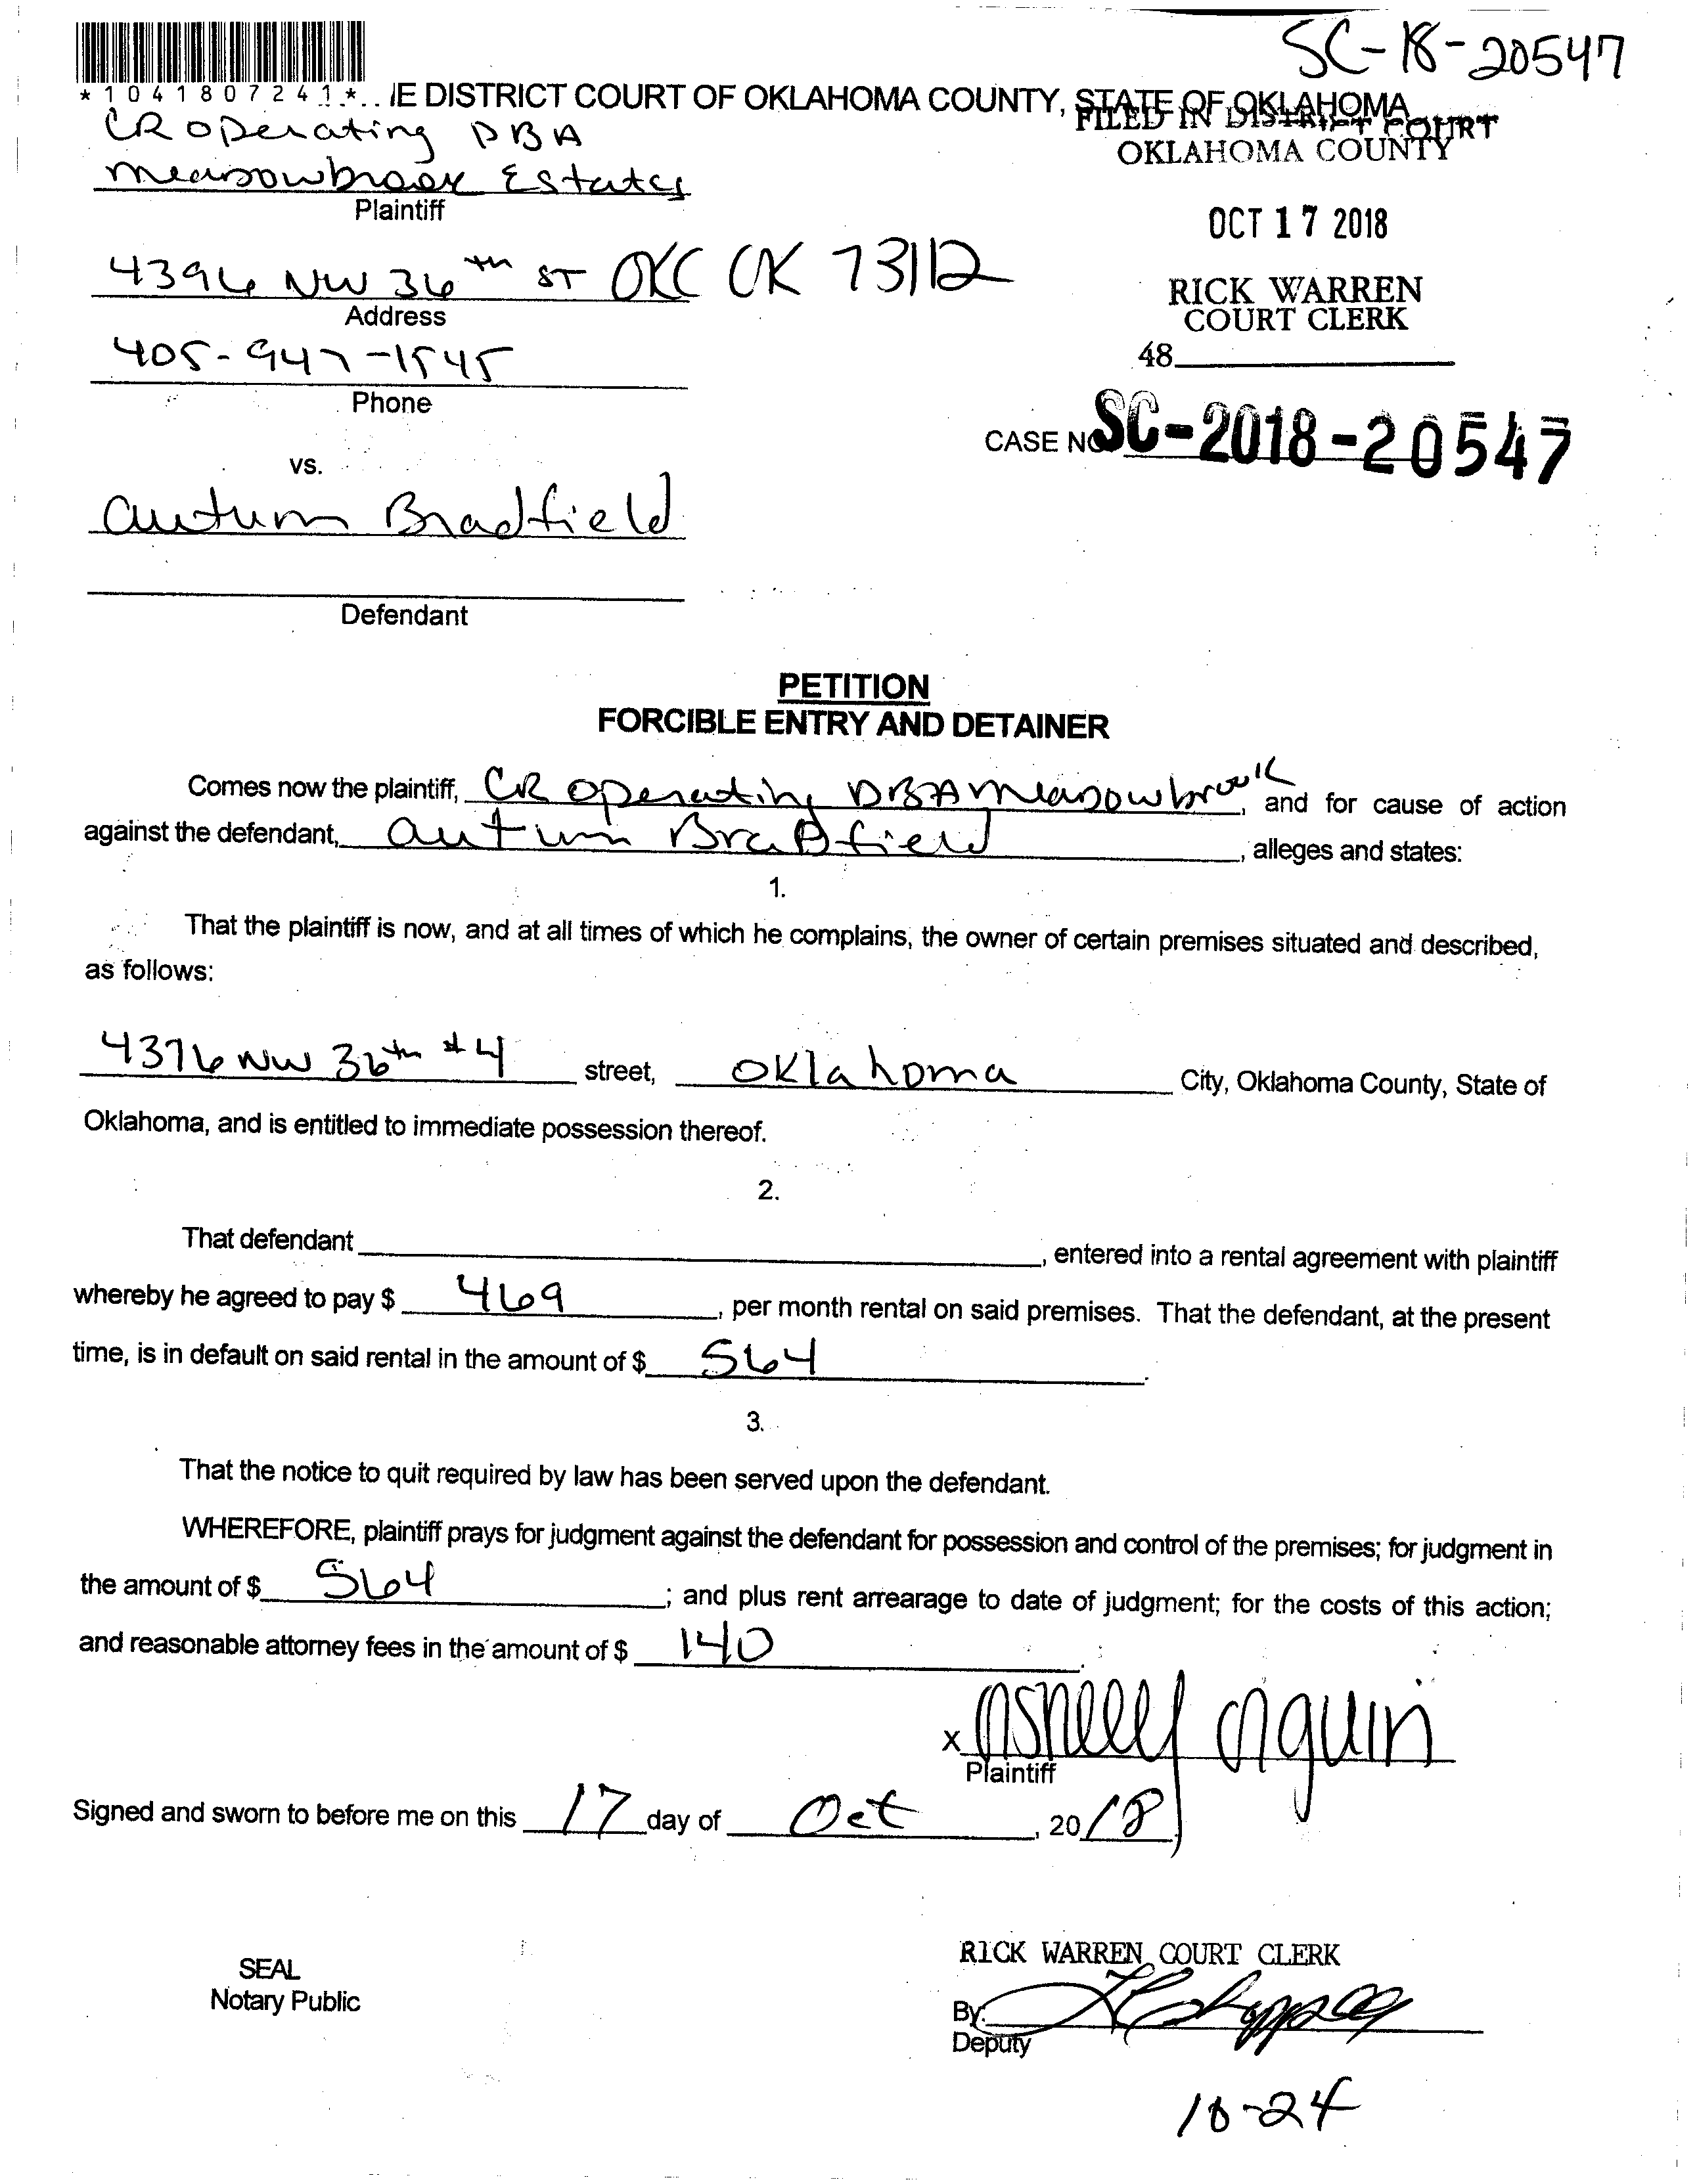 SC-18-20547
*1041807241* IE DISTRICT COURT OF OKLAHOMA COUNTY, STATE OF OKLAHOMA
FILED IN DISTRICT COURT
OKLAHOMA COUNTY
CR Operating DBA
Meadowbrook Estates
Plaintiff
OCT 17 2018
4396 NW 36th ST OKC OK 73112
Address
RICK WARREN
COURT CLERK
405-947-1545
Phone
48
CASE NO SC-2018-20547
vs.
Autumn Bradfield
Defendant
PETITION
FORCIBLE ENTRY AND DETAINER
Comes now the plaintiff, CR Operating DBA Meadowbrook, and for cause of action
against the defendant, Autumn Bradfield, alleges and states:
1.
That the plaintiff is now, and at all times of which he complains, the owner of certain premises situated and described,
as follows:
4376 NW 36th #4 street, Oklahoma City, Oklahoma County, State of
Oklahoma, and is entitled to immediate possession thereof.
2.
That defendant , entered into a rental agreement with plaintiff
whereby he agreed to pay $ 469, per month rental on said premises. That the defendant, at the present
time, is in default on said rental in the amount of $ 564.
3.
That the notice to quit required by law has been served upon the defendant.
WHEREFORE, plaintiff prays for judgment against the defendant for possession and control of the premises; for judgment in
the amount of $ 564; and plus rent arrearage to date of judgment; for the costs of this action;
and reasonable attorney fees in the amount of $ 140.
x Ashley
Plaintiff
Signed and sworn to before me on this 17 day of Oct, 2018
SEAL
Notary Public
RICK WARREN COURT CLERK
By:
Deputy
10-24